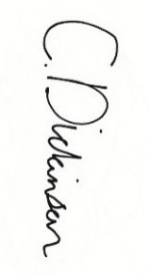 C. Dickinson